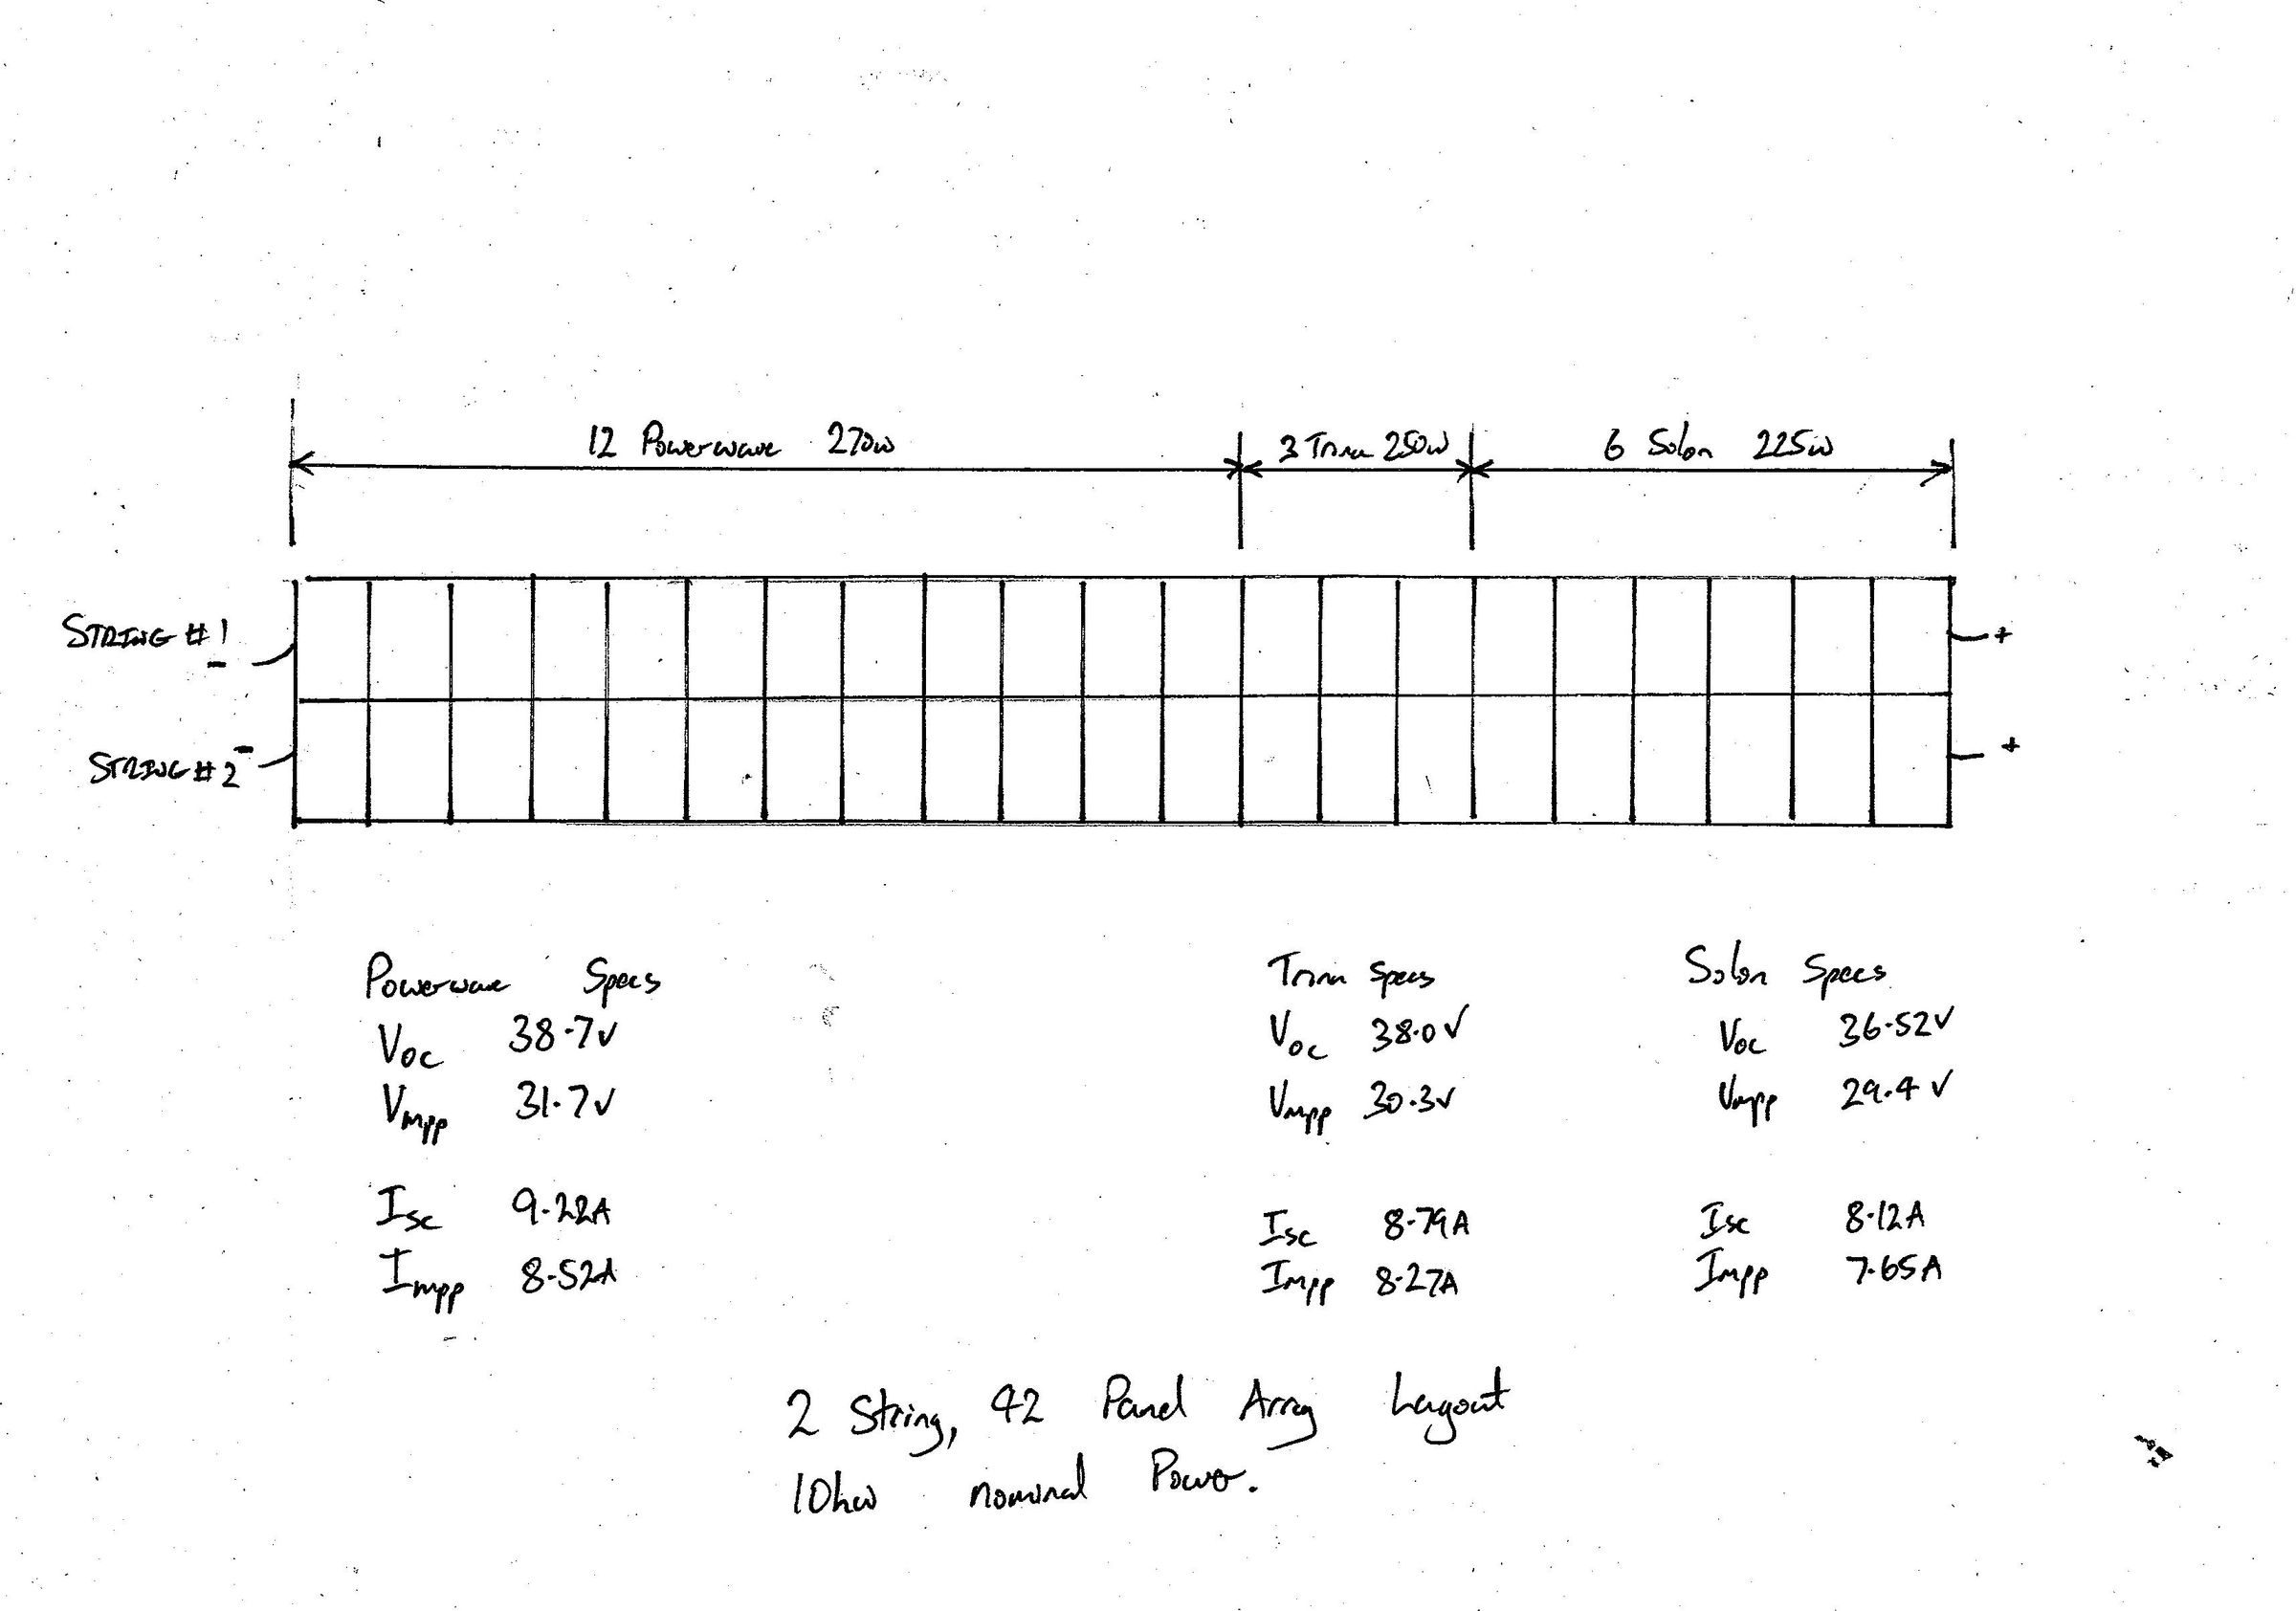 12 Powerwave 270w
3 Trina 250W
6 Solon 225w
STRING #1
-
+
STRING #2
-
+
Powerwave Specs
Voc 38.7v
Vmpp 31.7v
Isc 9.22A
Impp 8.52A
Trina Specs
Voc 38.0V
Vmpp 30.3v
Isc 8.79A
Impp 8.27A
Solon Specs
Voc 36.52V
Vmpp 29.4V
Isc 8.12A
Impp 7.65A
2 String, 42 Panel Array Layout
10kw nominal Power.